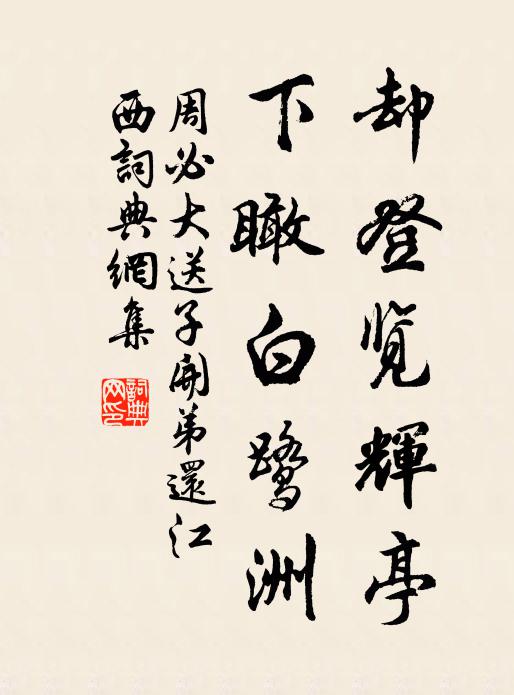 却登览輝亭
下瞰白鷺洲
周必大送子開弟還江
西詞典網集
詞典网印